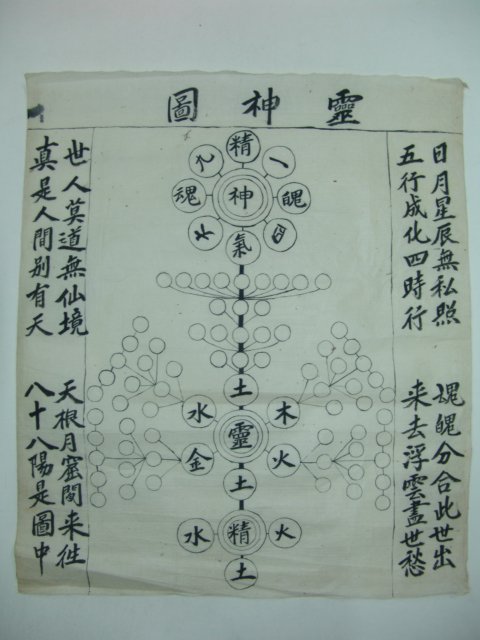 靈神圖
日月星辰無私照
五行成化四時行
魂魄分合此世出
来去浮雲盡世愁
精
一
魂 神 魄
氣
土
水 木
靈
金 火
土
水 精 火
土
世人莫道無仙境
真是人間別有天
天根月窟間来往
八十八陽是圖中